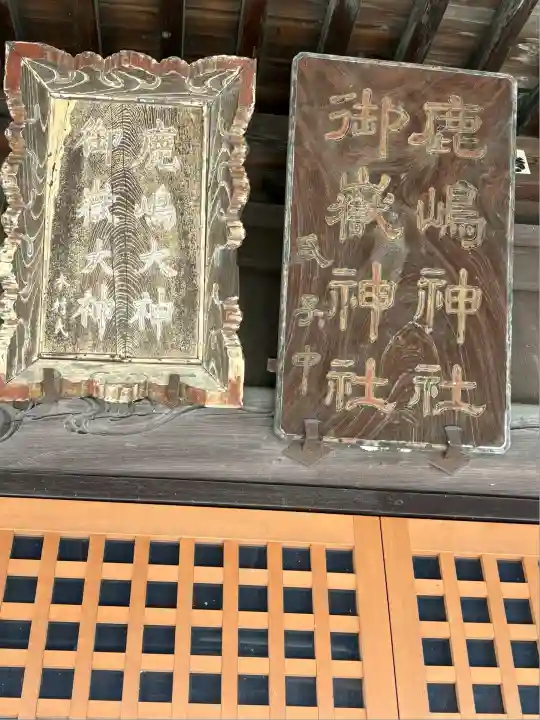 鹿嶋神社
御嶽神社
氏子中
鹿嶋大神
御嶽大神